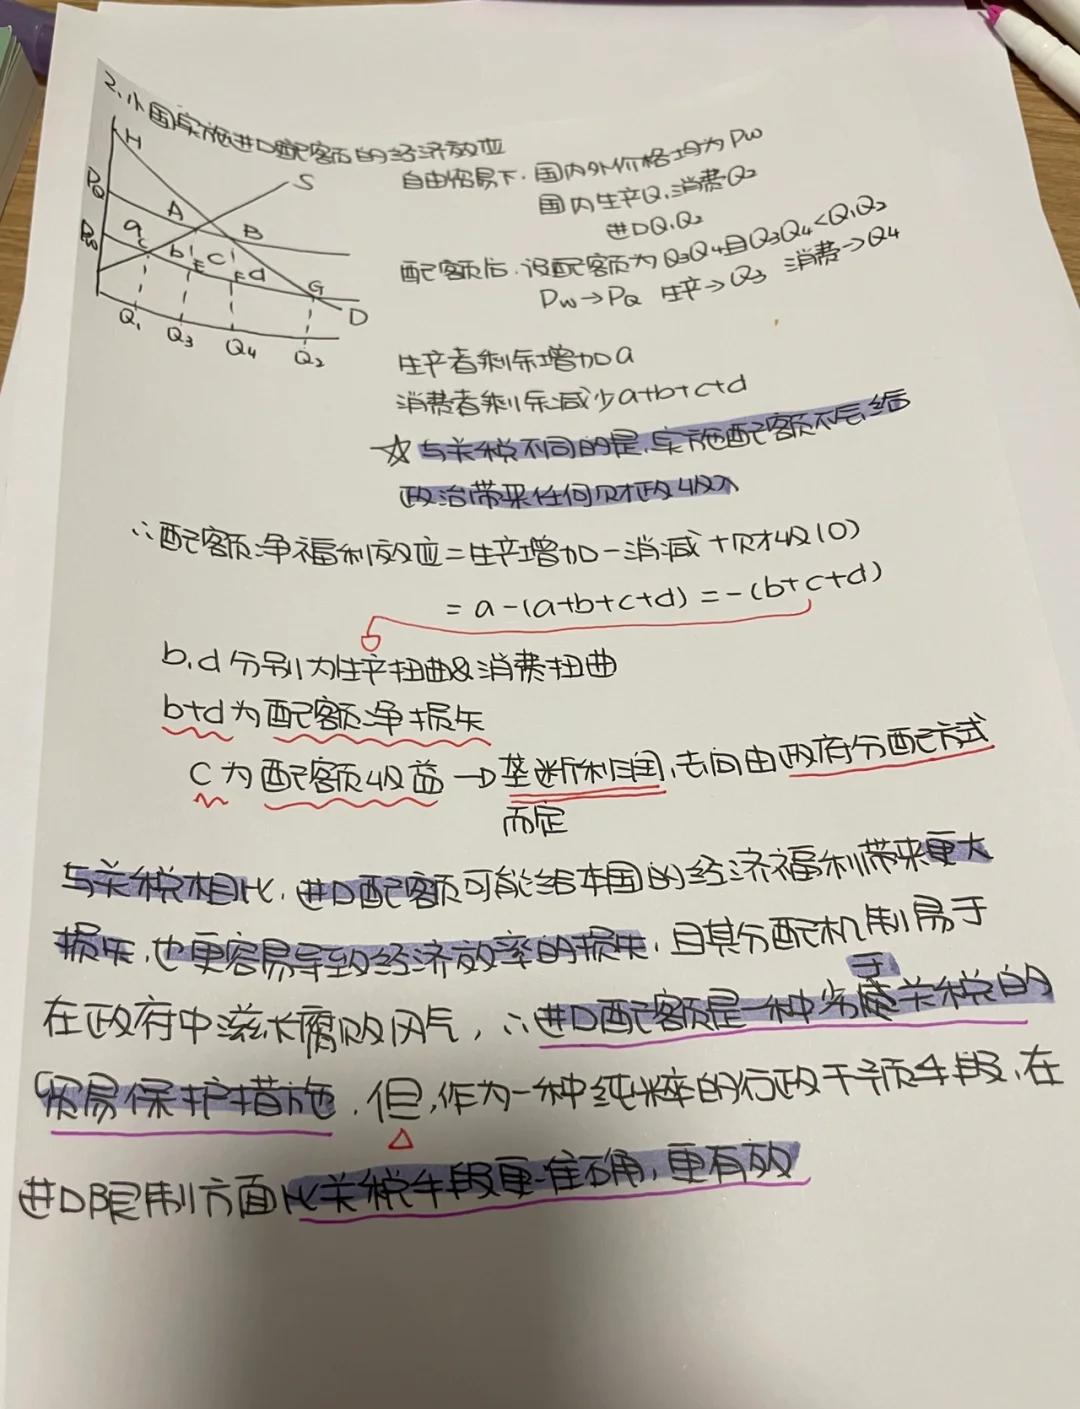 2、小国实施进口配额的经济效应
H
S
PQ
A
B
Pw
a
C
b
E
c
F
d
G
D
Q1
Q3
Q4
Q2
自由贸易下，国内外价格均为Pw
国内生产Q1消费Q2
进口Q1Q2
配额后，设配额为Q3Q4且Q3Q4<Q1Q2
Pw→PQ 生产→Q3 消费→Q4
生产者剩余增加a
消费者剩余减少a+b+c+d
☆与关税不同的是，实施配额不后，给
政治带来任何财政收入
∴配额净福利效应=生产增加-消减+财收(0)
=a-(a+b+c+d)=-(b+c+d)
b，d分别为生产扭曲&消费扭曲
b+d为配额净损失
C为配额收益→垄断利润，去向由政府分配方式
而定
与关税相比，进口配额可能给本国的经济福利带来更大
损失，也更容易导致经济效率的损失，且其分配机制易于
在政府中滋长腐败风气，∴进口配额是一种劣于关税的
贸易保护措施，但，作为一种纯粹的行政干预手段，在
进口限制方面比关税手段更准确，更有效